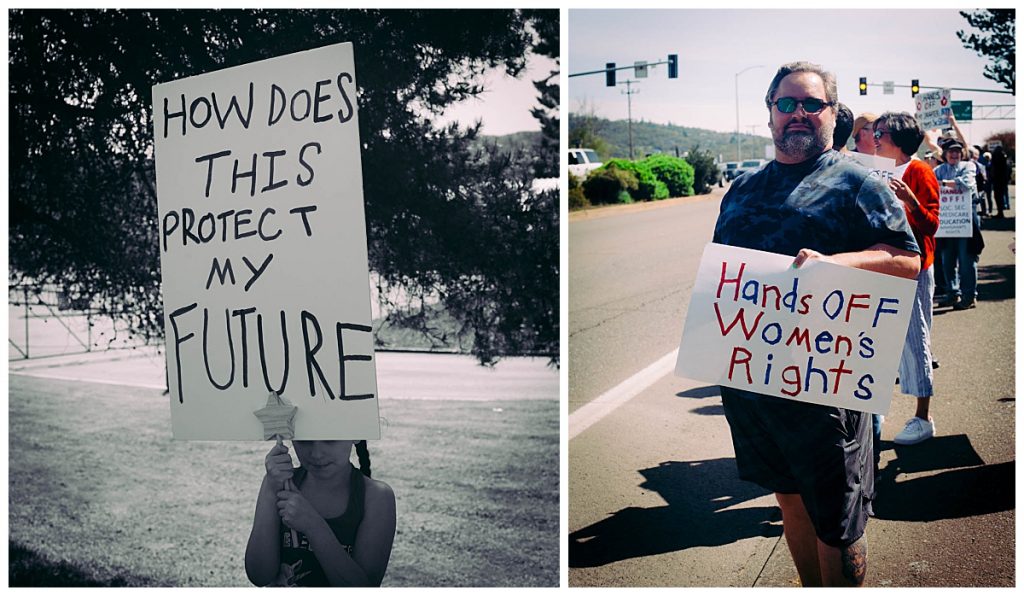 HOW DOES
THIS
PROTECT
MY
FUTURE
Hands OFF
Women's
Rights
HANDS
OFF
FF
HANDS
OFF!
SOC. SEC.
MEDICARE
EDUCATION